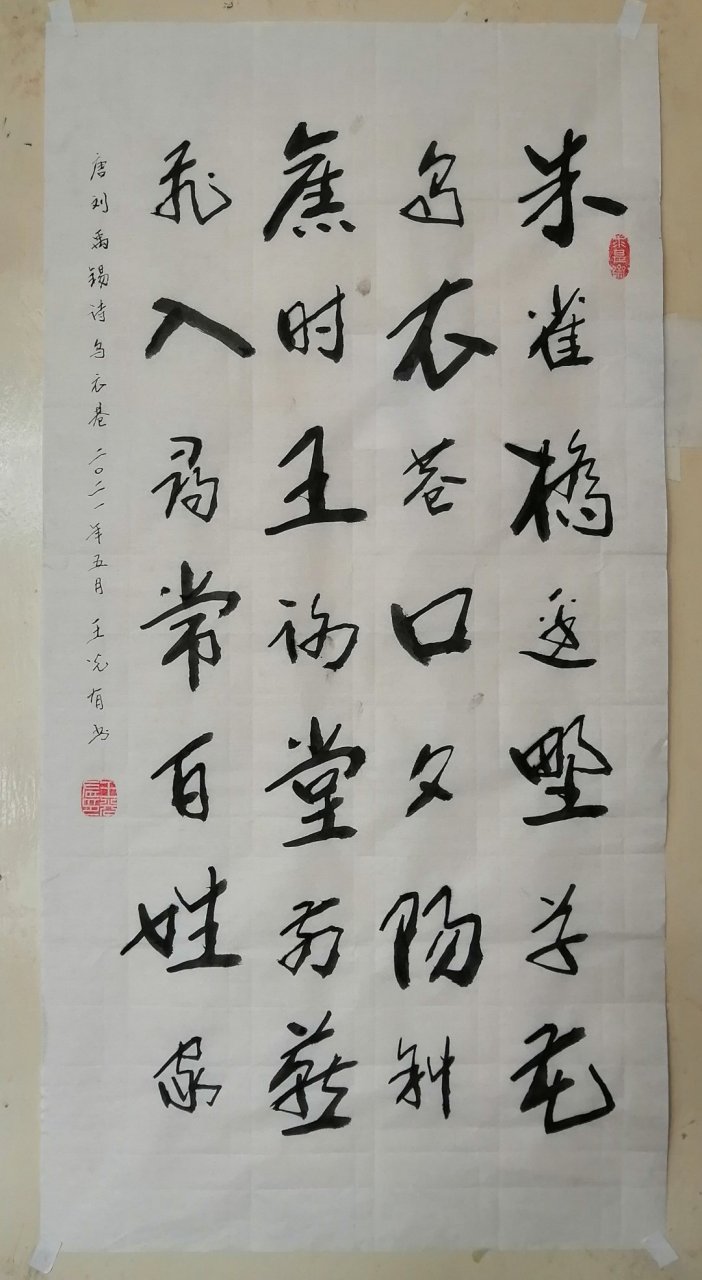 朱雀橋邊野草花
乌衣巷口夕陽斜
舊时王謝堂前燕
飛入尋常百姓家
唐刘禹錫诗乌衣巷 二〇二一年五月 王光有书